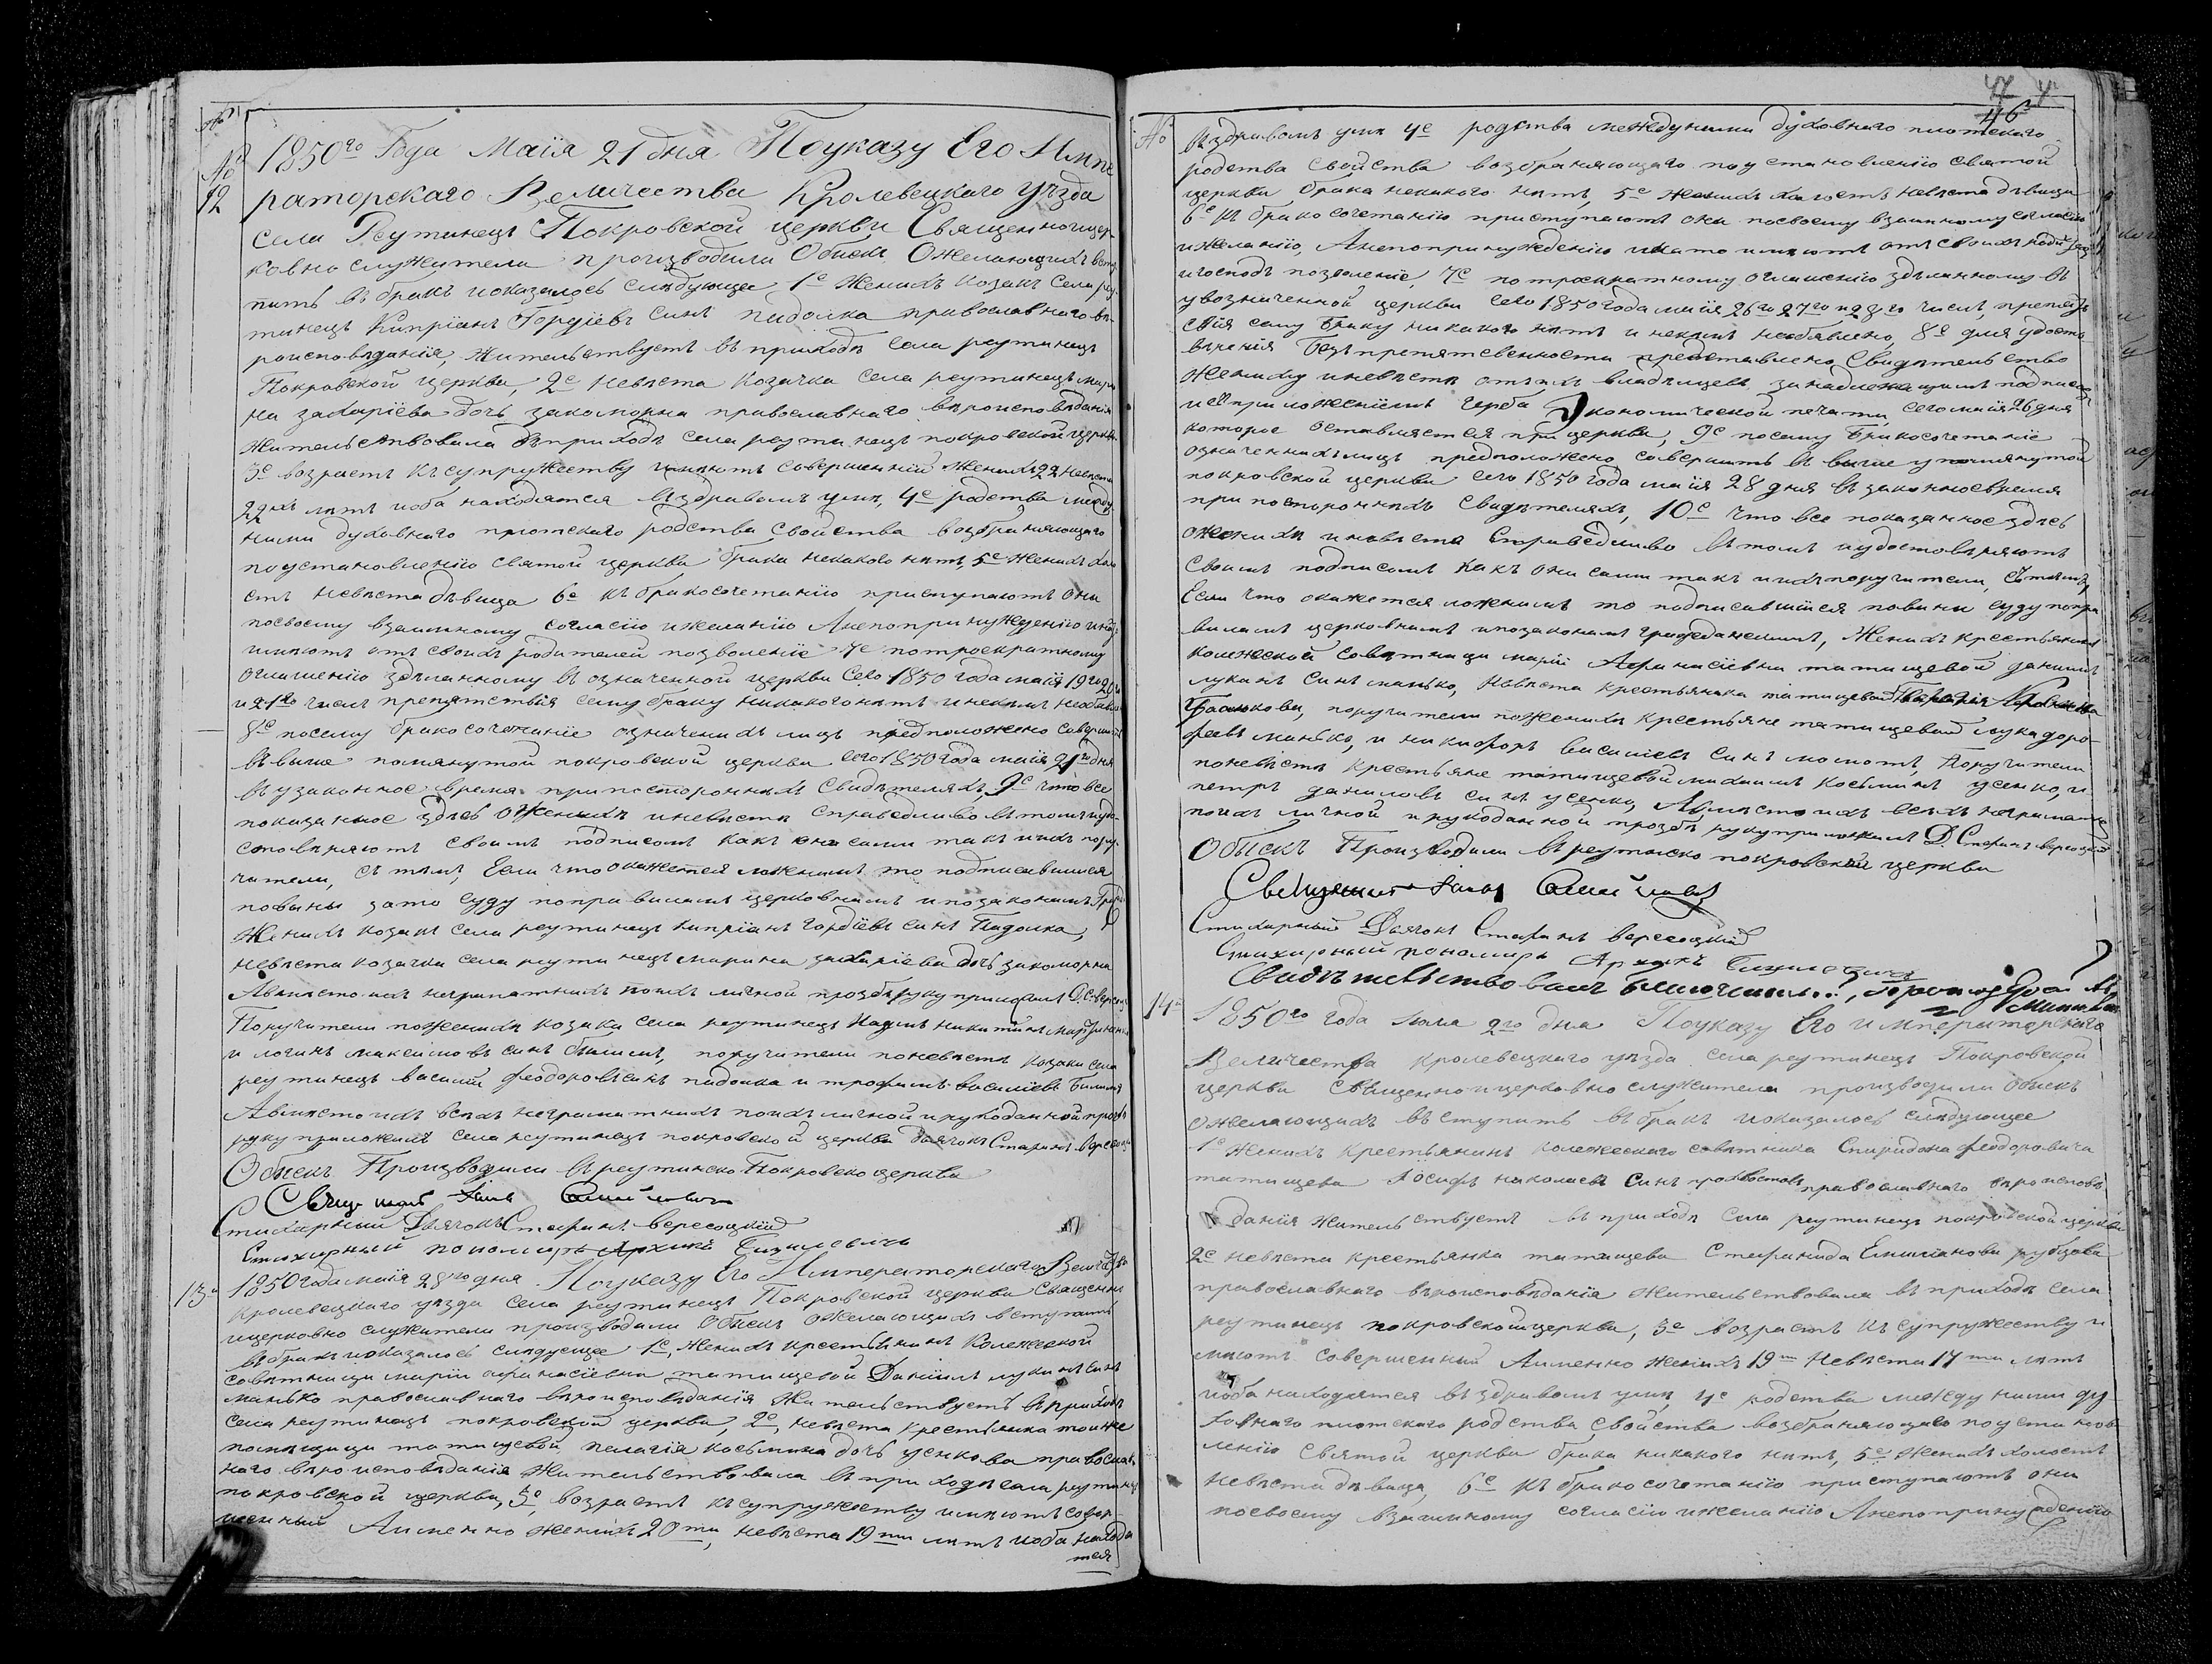 №
№
12
1850го Года Маія 21 дня Поуказу Его Импе
раторскаго Величества Кролевецкаго уѣзда
села Реутинецъ Покровской церкви Священноицер-
ковно служители производили Обыскъ Ожелающихъ всту
пить въ бракъ иоказалось слѣдующее 1е Женихъ козакъ села реу
тинецъ Кипріанъ Гордіевъ синъ падолка православнаго вѣ-
роисповѣданія, жительствуетъ въ приходѣ села реутинецъ
Покровской церкви, 2е невѣста козачка села реутинецъ мари
на захаріева дочь закоморна православнаго вѣроисповѣданія
жительствовала въприходѣ села реутинецъ покровской церкви
3е возрастъ къ супружеству имѣютъ совершенній женихъ 22 невѣста
22хъ лѣтъ иоба находятся въздравомъ умѣ, 4е родства между
ними духовнаго плотскаго родства свойства возбраняющаго
поустановленію святой церкви брака никакого нѣтъ, 5е женихъ холо
стъ невѣста дѣвица 6е къ бракосочетанію приступаютъ они
посвоему взаимному согласію ижеланію Анепопринужденію ина
имѣютъ отъ своихъ родителей позволеніе 7е потроекратному
оглашенію здѣланному въ означенной церкви сего 1850 года маія 19го 20го
и 21го числъ препятствія сему браку никакого нѣтъ инекимъ необявл
8е посему бракосочетаніе означенихъ лицъ предположено совершить
въвыше помянутой покровской церкви сего 1850 года маія 21го дня
въузаконное время припостороннихъ свидѣтеляхъ 9е что все
показанное здѣсь о женихѣ иневѣстѣ справедливо въ томъ иудо-
стовѣряютъ своимъ подписомъ какъ они сами такъ иихъ пору-
чители, съ тѣмъ, Если что окажется ложнимъ то подписавшися
повины зато суду поправиламъ церковнимъ ипозаконамъ Граж
Женихъ козакъ села реутинецъ кипріанъ гордіевъ синъ Падолка,
невѣста козачка села реутинецъ марина захаріева дочь закоморна
Авмѣсто ихъ неграматнихъ поихъ личной прозбѣ руку приложилъ Д. С. Верес
Поручители поженихѣ козаки села реутинецъ Наумъ никитинъ мартиненко
и логинъ максимовъ синъ билимъ, поручители поневѣстѣ козаки села
реутинецъ василій феодоровъ синъ падолка и трофимъ василіевъ билимъ
Авмѣсто ихъ всѣхъ неграматнихъ поихъ личной ирукоданной прозб
руку приложилъ села реутинецъ покровской церкви дьячокъ Стефанъ Вересоцкій
Обыскъ Производили въреутинско Покровско церкви
Стихарный Дьячокъ Стефанъ Вересоцкій
Стихарный пономарь Архипъ
13й
1850 года маія 28го дня Поуказу Его Императорскаго Велич
Кролевецкаго уѣзда села реутинецъ Покровской церкви Священно
ицерковно служители производили Обыскъ ожелающихъ вступить
въбракъ иоказалось слѣдующее 1е, Женихъ крестьянинъ Колежской
совѣтници маріи афанасіевни татищевой Даніилъ лукинъ синъ
манько православнаго вѣроисповѣданія Жительствуетъ въприходѣ
села реутинецъ покровской церкви, 2е, невѣста крестьянка тоиже
помѣщици татищевой пелагія косьмина дочь усенкова православ
наго вѣроисповѣданія жительствовала въприходѣ села реутинец
покровской церкви, 3е возрастъ къ супружеству имѣютъ совер
шенный Аименно женихъ 20ти, невѣста 19ти лѣтъ иоба находя
тся
46
№
Въздравомъ умѣ 4е родства междуними духовнаго плотскаго
родства свойства возбраняющаго поустановленію святой
церкви брака никакого нѣтъ, 5е женихъ холостъ невѣста дѣвица
6е къ бракосочетанію приступаютъ они посвоему взаимному согласію
ижеланію, Анепопринужденію инато имѣютъ отъ своихъ
игосподъ позволеніе, 7е потроекратному оглашенію здѣланному въ
увозначенной церкви сего 1850 года маія 26го 27го и 28го числъ, препят
ствія сему браку никакого нѣтъ и некимъ необявлено, 8е для удосто
вѣренія безпрепятственности представлено свидѣтельство
жениху иневѣстѣ отъ ихъ владѣлцевъ занадлежащимъ подписо
исприложеніемъ герба Экономической печати, сего маія 26 дня
которое оставляется прицеркви, 9е посему бракосочетаніе
означеннихълицъ предположено совершить въ выше упомянутой
покровской церкви сего 1850 года маія 28 дня въ законное время
при постороннихъ свидѣтеляхъ, 10е что все показанное здѣсь
оженихѣ иневѣстѣ справедливо въ томъ иудостовѣряютъ
своимъ подписомъ какъ они сами такъ иихъ поручители, съ тѣмъ
Если что окажется ложнимъ то подписавшіися повины суду попра
виламъ церковнимъ ипозаконамъ гражданскимъ, Женихъ крестьянинъ
колежской совѣтници маріи Афанасіевни татищевой даніилъ
лукинъ синъ манько, Невѣста крестьянка татищевой
поручители поженихѣ крестьяне татищевой лука доро-
феевъ манько, и никифоръ василіевъ синъ Поручители
поневѣстѣ крестьяне татищевой михаилъ косьминъ усенко, и
петръ даниловъ синъ усенко, Авмѣсто ихъ всѣхъ неграматн
поихъ личной ирукоданной прозбѣ руку приложилъ Д. Стефанъ вересоцкій
Обыскъ Производили въреутинско покровской церкви
Стихарный Дьячокъ Стефанъ Вересоцкій
Стихарный пономарь Архипъ
14й
1850го года 2го дня Поуказу Его Императорскаго
Величества Кролевецкаго уѣзда села реутинецъ Покровской
церкви священноицерковно служители производили Обыскъ
ожелающихъ въступить въбракъ иоказалось слѣдующее
1е Женихъ крестьянинъ колежскаго совѣтника Спиридона феодоровича
татищева Іосифъ николаевъ синъ православнаго вѣроисповѣ
данія жительствуетъ въ приходѣ села реутинецъ покровской церкви
2е невѣста крестьянка татищева Стефанида Емиліанова рубцова
православнаго вѣроисповѣданія жительствовала въ приходѣ села
реутинецъ покровскойцеркви, 3е возрастъ къ супружеству и
мѣютъ совершенный Аименно женихъ 19ти невѣста 17ти лѣтъ
иоба находятся въ здравомъ умѣ, 4е родства между ними ду
ховнаго плотскаго родства, свойства возбраняющаго поустанов
ленію святой церкви брака никакого нѣтъ, 5е женихъ холостъ
невѣста дѣвица, 6е къ бракосочетанію приступаютъ они
посвоему взаимному согласію ижеланію Анепопринужденію